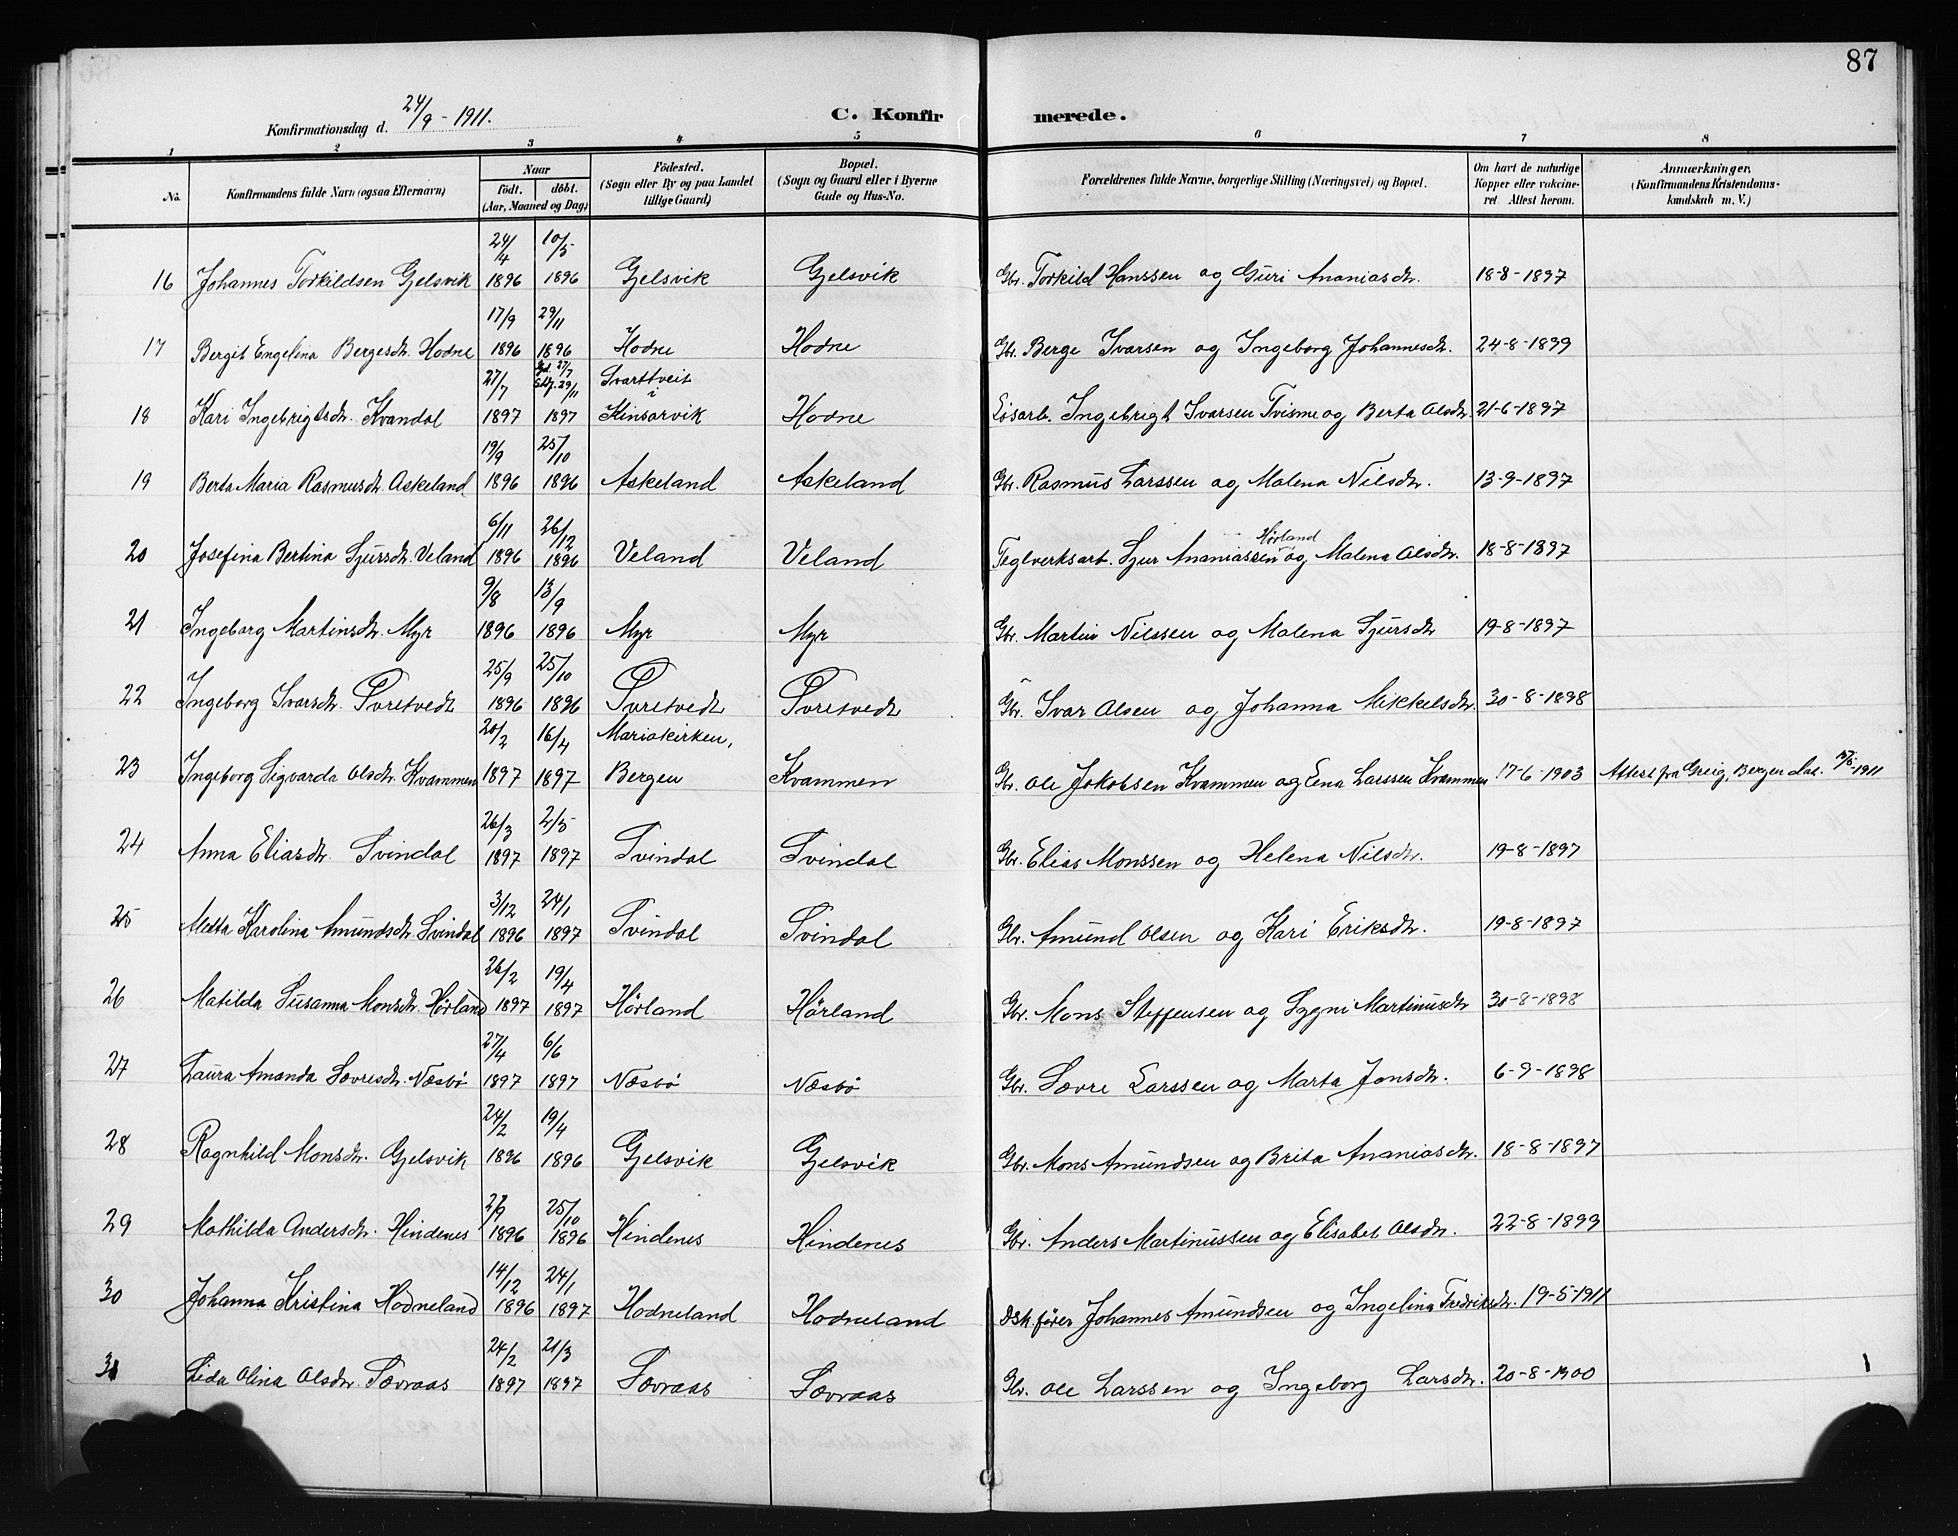 87
Konfirmationsdag d. 24/9 - 1911.
C. Konfirmerede.
1 2 3 4 5 6 7 8
No. | Konfirmandens fulde Navn (ogsaa Efternavn) | Naar födt. döbt. (Aar, Maaned og Dag) | Födested. (Sogn eller By og paa Landet tillige Gaard) | Bopæl. (Sogn og Gaard eller i Byerne Gade og Hus-No. | Forældrenes fulde Navne, borgerlige Stilling (Næringsvei) og Bopæl. | Om havt de naturlige Kopper eller vakcineret. Attest herom. | Anmærkninger. (Konfirmandens Kristendomskundskab m. V.)
16 Johannes Torkildsen Gjelsvik 24/4 1896 10/5 1896 Gjelsvik Gjelsvik Gbr. Torkild Hanssen og Guri Ananiasdtr. 18-8-1897
17 Bergit Engelina Bergesdtr. Hodne 17/9 1896 29/11 1896 Hodne Hodne Gbr. Berge Ivarsen og Ingeborg Johannesdtr. 24-8-1899
18 Kari Ingebrigtsdtr. Kvandal 27/7 1897 27/7 29/11 1897 Svarttveit i Kinsarvik Hodne Løsarb. Ingebrigt Ivarsen Tvisme og Berta Olsdtr. 21-6-1897
19 Berta Maria Rasmusdtr. Askeland 19/9 1896 25/10 1896 Askeland Askeland Gbr. Rasmus Larssen og Malena Nilsdtr. 13-9-1897
20 Josefina Bertina Sjursdtr. Veland 6/11 1896 26/12 1896 Veland Veland Teglverksarb. Sjur Ananiassen Hørland og Malena Olsdtr. 18-8-1897
21 Ingeborg Martinsdtr. Myr 9/8 1896 13/9 1896 Myr Myr Gbr. Martin Nilssen og Malena Sjursdtr 19-8-1897
22 Ingeborg Ivarsdtr. Tvetvedt 25/9 1896 25/10 1896 Gbr. Ivar Olsen og Johanna Mikkelsdtr. 30-8-1898
23 Ingeborg Sigvarda Olsdtr. Kvammen 20/2 1897 16/4 1897 Mariakirken, Bergen Kvammen Gbr. Ole Jakobsen Kvammen og Lena Larssen Kvammen 17-6-1903 Attest fra Greig, Bergen dat. 1911
24 Anna Eliasdtr. Svindal 26/3 1897 2/5 1897 Svindal Svindal Gbr. Elias Monssen og Helena Nilsdtr. 19-8-1897
25 Metta Karolina Amundsdtr. Svindal 3/12 1896 24/1 1897 Svindal Svindal Gbr. Amund Olsen og Kari Eriksdtr. 19-8-1897
26 Matilda Susanna Monsdtr. Hørland 26/2 1897 19/4 1897 Hørland Hørland Gbr. Mons Steffensen og Sygni Martinusdtr 30-8-1898
27 Laura Amanda Sævresdtr. Næsbø 27/4 1897 6/6 1897 Næsbø Næsbø Gbr. Sævre Larssen og Marta Jonsdtr. 6-9-1898
28 Ragnhild Monsdtr. Gjelsvik 24/2 1896 19/4 1896 Gjelsvik Gjelsvik Gbr. Mons Amundsen og Brita Ananiasdtr. 18-8-1897
29 Mathilda Andersdtr. Hindenes 1896 25/10 1896 Hindenes Hindenes Gbr. Anders Martinussen og Elisabet Olsdtr. 22-8-1899
30 Johanna Kristina Hodneland 14/12 1896 24/1 1897 Hodneland Hodneland Dsk.fører Johannes Amundsen og Ingelina Fredriksdtr. 19-5-1911
31 Lida Olina Olsdtr. Sævraas 24/2 1897 21/3 1897 Sævraas Sævraas Gbr. Ole Larssen og Ingeborg Larsdtr. 20-8-1900